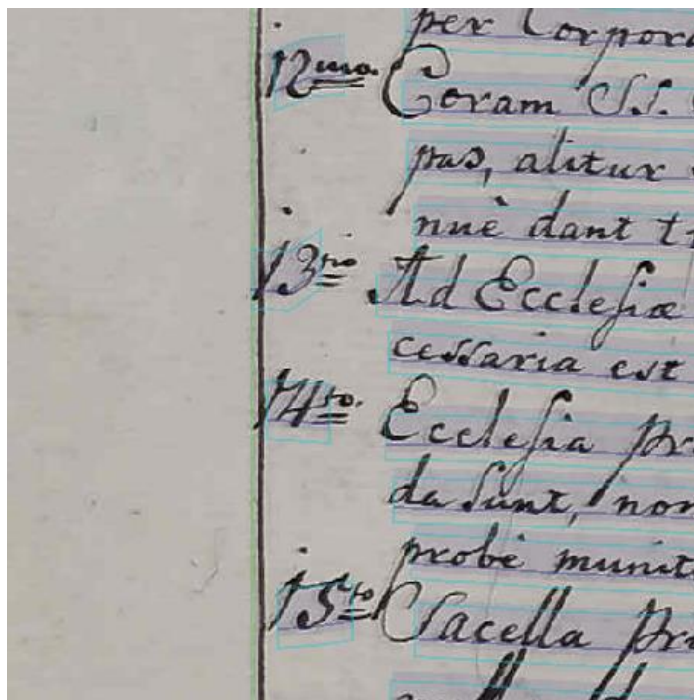 per Corpora
12mo. Coram S.S.
pas, alitur
nuè dant t
13tio Ad Ecclesiæ
cessaria est
14to. Ecclesia pr
da sunt, non
probè munit
15to Sacella pr